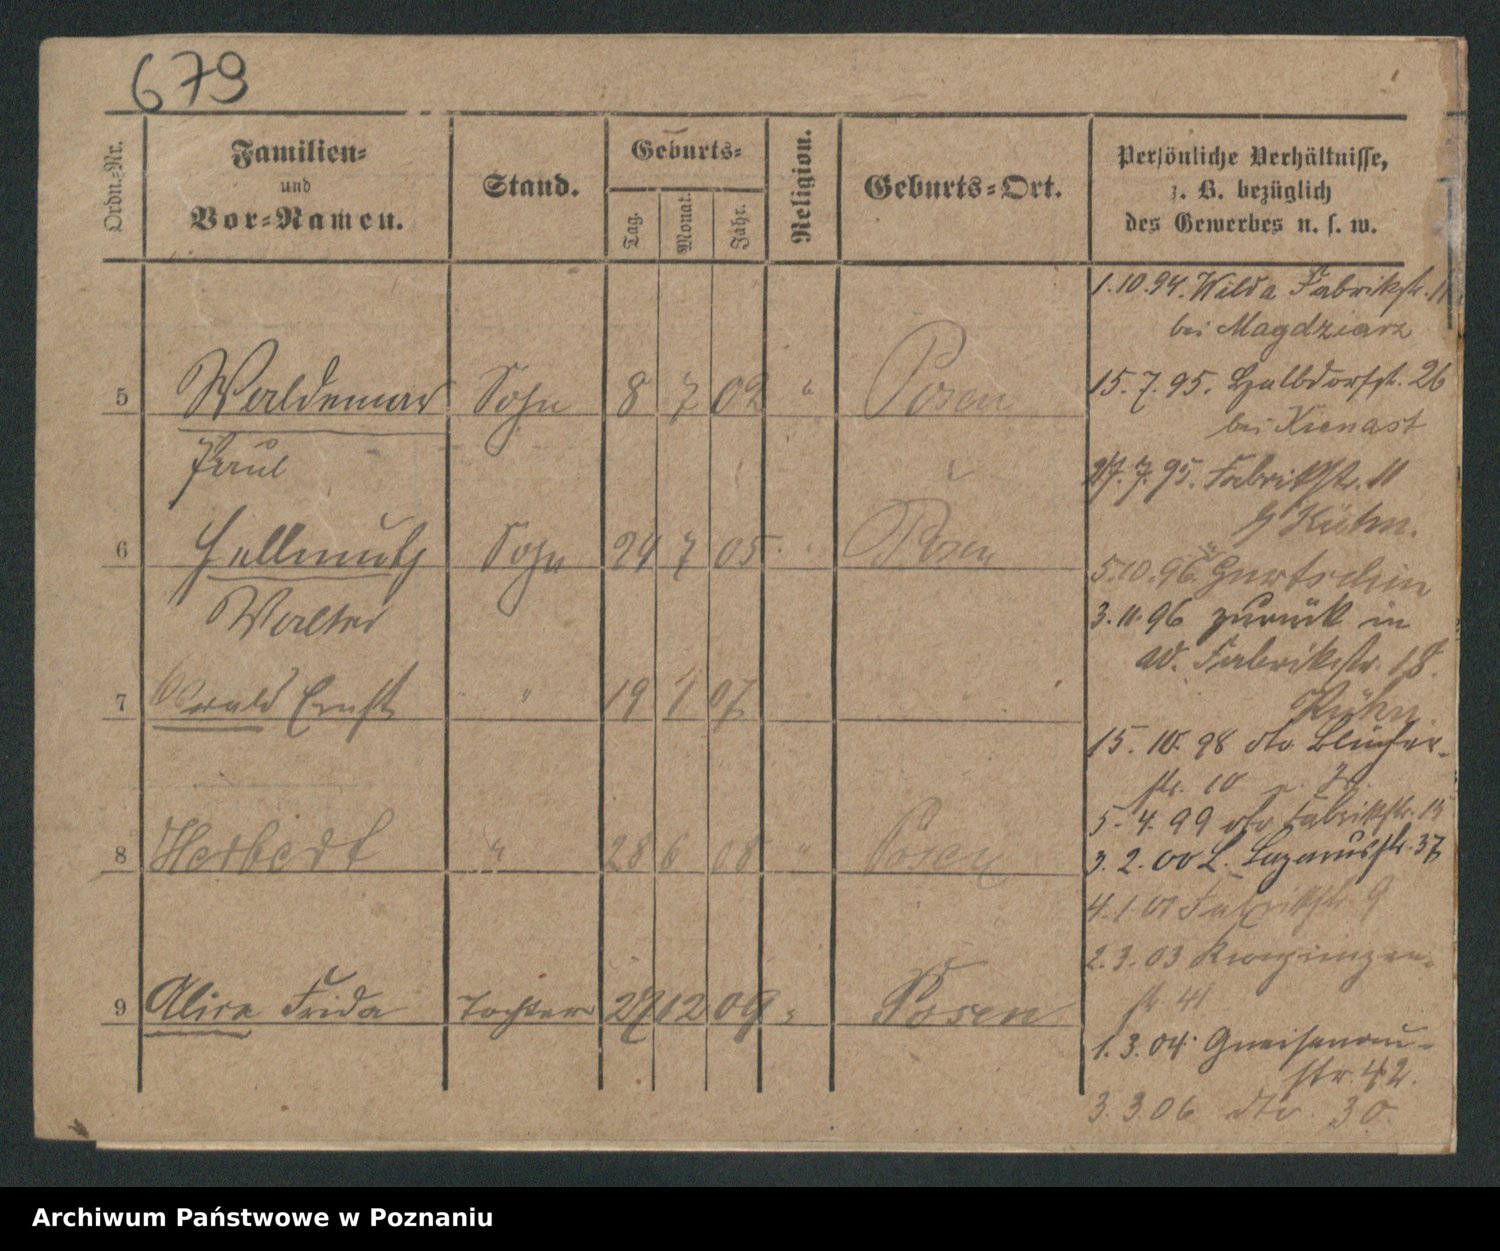 679
Ordn.-Nr.
Familien-
und
Vor-Namen.
Stand.
Geburts-
Tag.
Monat.
Jahr.
Religion.
Geburts-Ort.
Persönliche Verhältnisse,
z. B. bezüglich
des Gewerbes u. s. w.
5 Waldemar Sohn 8 7 02 " Posen
Paul
6 Hellmuth Sohn 24 7 05 Posen
Walter
7 Ewald Ernst " 19 1 07
8 Herbert " 28 6 08 " Posen
9 Alice Frida Tochter 27 12 09 Posen
1.10.94. Wilda Fabrikstr. 11
bei Magdziarz
15.7.95. Halbdorfstr. 26
bei Kienast
27.7.95. Fabrikstr. 11
b/ Kühn.
5.10.96. Gurtschin
3.11.96 zurück in
W. Fabrikstr. 18.
Kühn.
15.10.98 dto Blücher-
str. 10
5.4.99 dto Fabrikstr. 15
3.2.00 L. Lazarusstr. 37
4.1.01 Fabrikstr 9
2.3.03
str 41
1.3.04 Gneisenau-
str. 42.
3.3.06 dto 30.
Archiwum Państwowe w Poznaniu